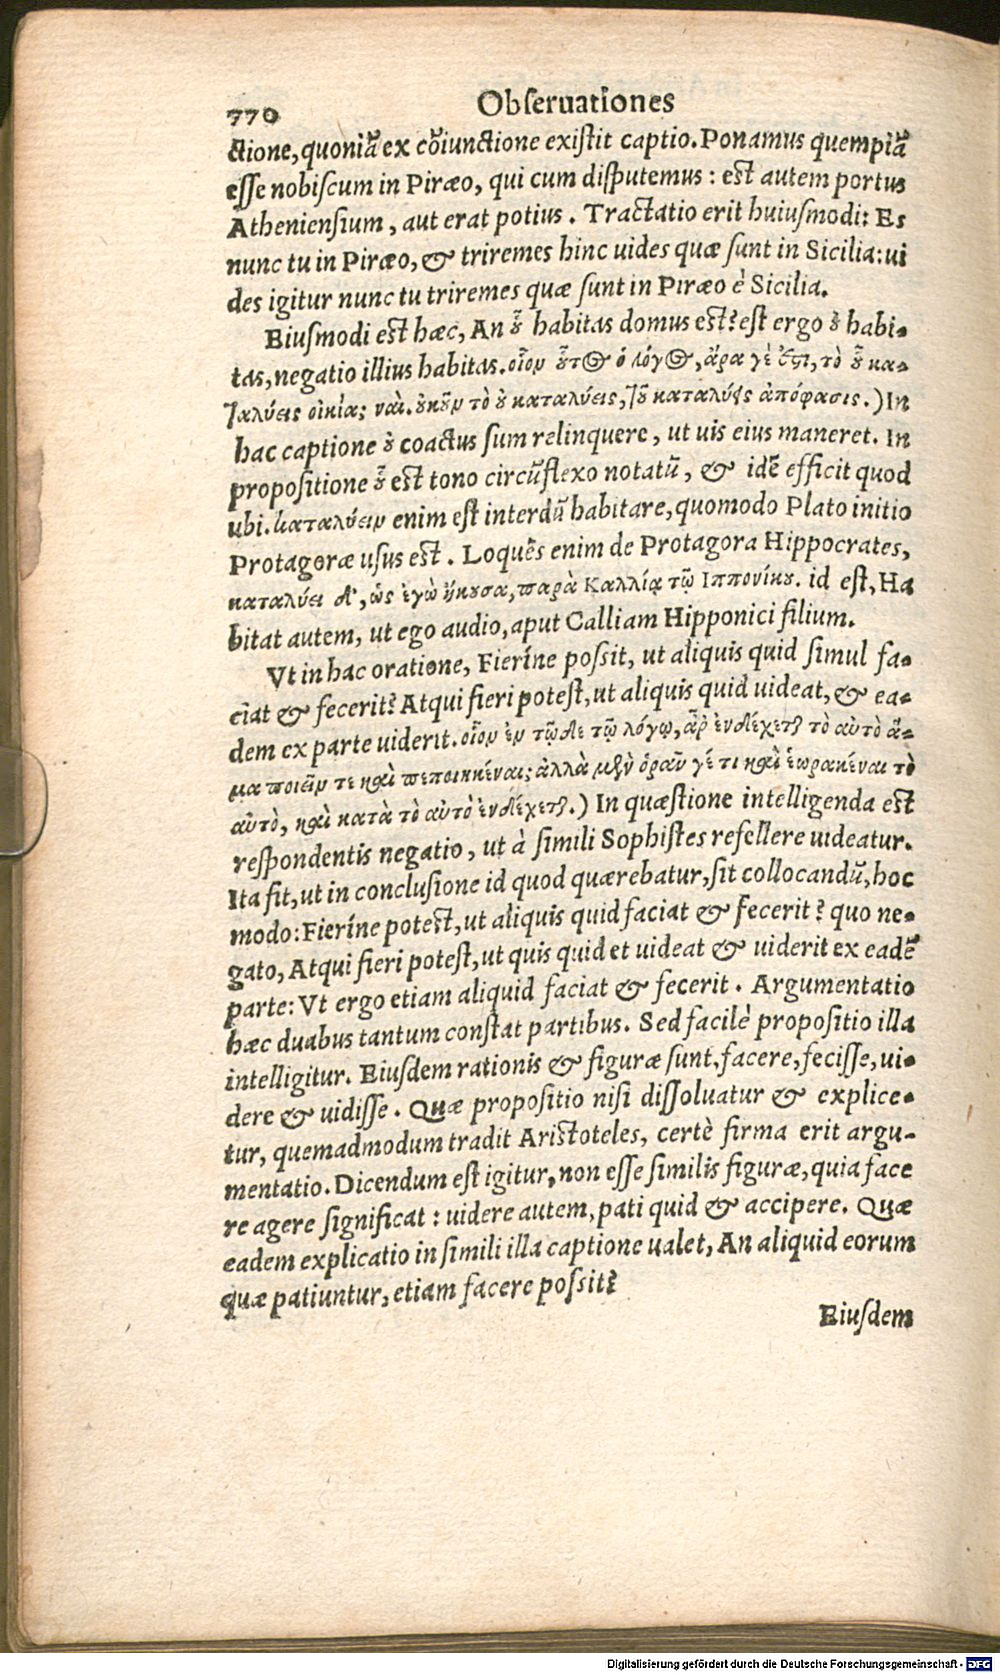 770 Obſeruationes
ctione, quoniã ex cõiunctione exiſtit captio. Ponamus quempiã
eſſe nobiſcum in Piræo, qui cum diſputemus: eſt autem portus
Athenienſium, aut erat potius. Tractatio erit huiuſmodi: Es
nunc tu in Piræo, & triremes hinc uides quæ ſunt in Sicilia: ui
des igitur nunc tu triremes quæ ſunt in Piræo è Sicilia.
Eiuſmodi eſt hæc, An ȣ̃ habitas domus eſt? eſt ergo ȣ̀ habi-
tas, negatio illius habitas. οἷον ȣ̃τος ὁ λόγος, ἆρα γέ ἐςι, τὸ ȣ̃ κα-
ταλύεις οἰκία; ναί. ȣ̓κȣ̃ν τὸ ȣ̓ καταλύεις, τȣ̃ καταλύεις ἀπόφασις.) In
hac captione ȣ̀ coactus ſum relinquere, ut uis eius maneret. In
propoſitione ȣ̃ eſt tono circũflexo notatũ, & idẽ efficit quod
ubi. καταλύειν enim eſt interdũ habitare, quomodo Plato initio
Protagoræ uſus eſt. Loquẽs enim de Protagora Hippocrates,
καταλύει δ᾽, ὡς ἐγὼ ἤκουσα, παρὰ Καλλίᾳ τῷ Ιππονίκȣ. id eſt, Ha
bitat autem, ut ego audio, aput Calliam Hipponici filium.
Vt in hac oratione, Fieríne poſsit, ut aliquis quid ſimul fa-
ciat & fecerit? Atqui fieri poteſt, ut aliquis quid uideat, & ea-
dem ex parte uiderit. οἷον ἐν τῷδε τῷ λόγῳ, ἆρ᾽ ἐνδέχεται τὸ αὐτὸ ἅ-
μα ποιεῖν τε καὶ πεποιηκέναι; ἀλλὰ μὴν ὁρᾶν γέ τι καὶ ἑωρακέναι τὸ
αὐτὸ, καὶ κατὰ τὸ αὐτὸ ἐνδέχεται.) In quæſtione intelligenda eſt
reſpondentis negatio, ut à ſimili Sophiſtes refellere uideatur.
Ita fit, ut in concluſione id quod quærebatur, ſit collocandũ, hoc
modo: Fieríne poteſt, ut aliquis quid faciat & fecerit? quo ne-
gato, Atqui fieri poteſt, ut quis quid et uideat & uiderit ex eadẽ
parte: Vt ergo etiam aliquid faciat & fecerit. Argumentatio
hæc duabus tantum conſtat partibus. Sed facilè propoſitio illa
intelligitur. Eiuſdem rationis & figuræ ſunt, facere, feciſſe, ui-
dere & uidiſſe. Quæ propoſitio niſi diſſoluatur & explice-
tur, quemadmodum tradit Ariſtoteles, certè firma erit argu-
mentatio. Dicendum eſt igitur, non eſſe ſimilis figuræ, quia face
re agere ſignificat: uidere autem, pati quid & accipere. Quæ
eadem explicatio in ſimili illa captione ualet, An aliquid eorum
quæ patiuntur, etiam facere poſsit?
Eiuſdem
Digitalisierung gefördert durch die Deutsche Forschungsgemeinschaft - DFG